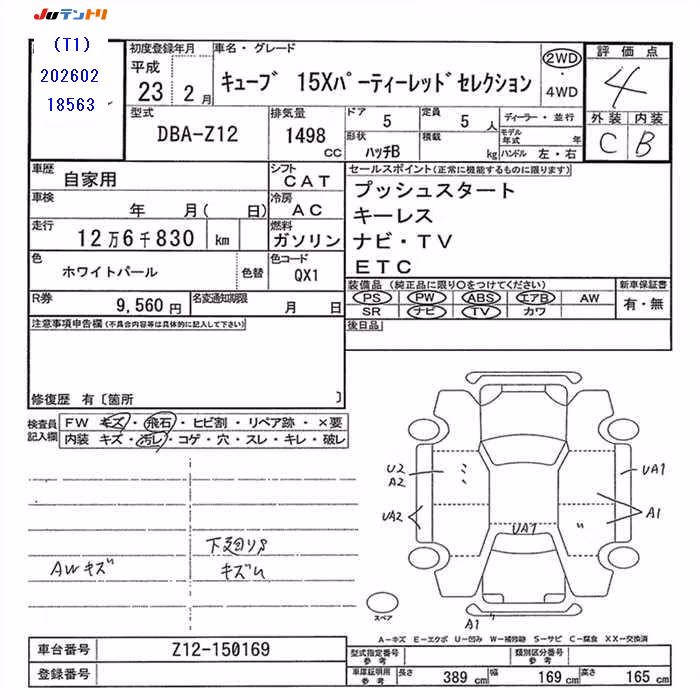 JUテントリ
(T1)
202602
18563
初度登録年月
平成
23 2 月
車名・グレード
キューブ 15Xパーティーレッドセレクション
2WD
・
4WD
評価点
4
外装 内装
C B
型式
DBA-Z12
排気量
1498
CC
ドア 5
定員 5 人
形状 ハッチB
積載 kg
ディーラー・並行
モデル年式 年
ハンドル 左・右
車歴
自家用
シフト
CAT
車検
年 月( 日)
冷房
AC
走行
12万6千830 km
燃料
ガソリン
色
ホワイトパール
色替
色コード
QX1
R券
9,560 円
名変通知期限
月 日
セールスポイント(正常に機能するものに限ります)
プッシュスタート
キーレス
ナビ・TV
ETC
装備品 (純正品に限り○をつけてください)
PS PW ABS エアB AW
SR ナビ TV カワ
新車保証書
有・無
後日品
注意事項申告欄(不具合内容等は具体的に記入して下さい)
修復歴 有〔箇所 〕
検査員
記入欄
FW キズ・飛石・ヒビ割・リペア跡・×要
内装 キズ・汚レ・コゲ・穴・スレ・キレ・破レ
AWキズ
下廻りS
キズU
U2
A2
UA2
UA1
UA1
A1
A1
スペア
A−キズ E−エクボ U−凹み W−補修跡 S−サビ C−腐食 XX−交換済
車台番号
Z12-150169
登録番号
型式指定番号
参考
類別区分番号
参考
車庫証明用
参考
長さ 389 cm 幅 169 cm 高さ 165 cm